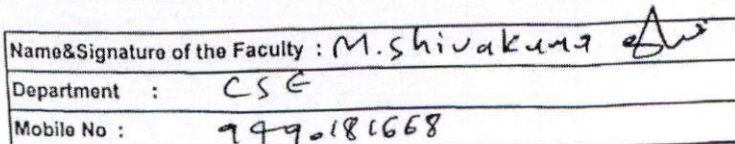 Name&Signature of the Faculty : M. Shivakumar
Department : CSE
Mobile No : 9490181668